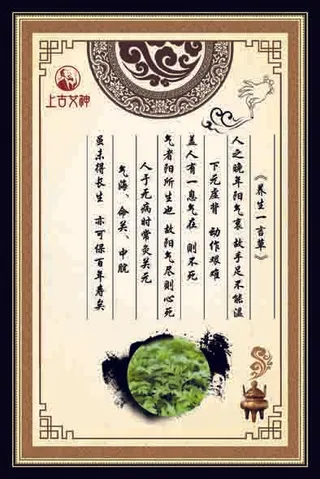 上古女神
《养生一言草》
人之晚年阳气衰 故手足不能温
下元虚背 动作艰难
盖人有一息气在 则不死
气者阳所生也 故阳气尽则心死
人于无病时常灸关元
气海、命关、中脘
虽未得长生 亦可保百年寿矣